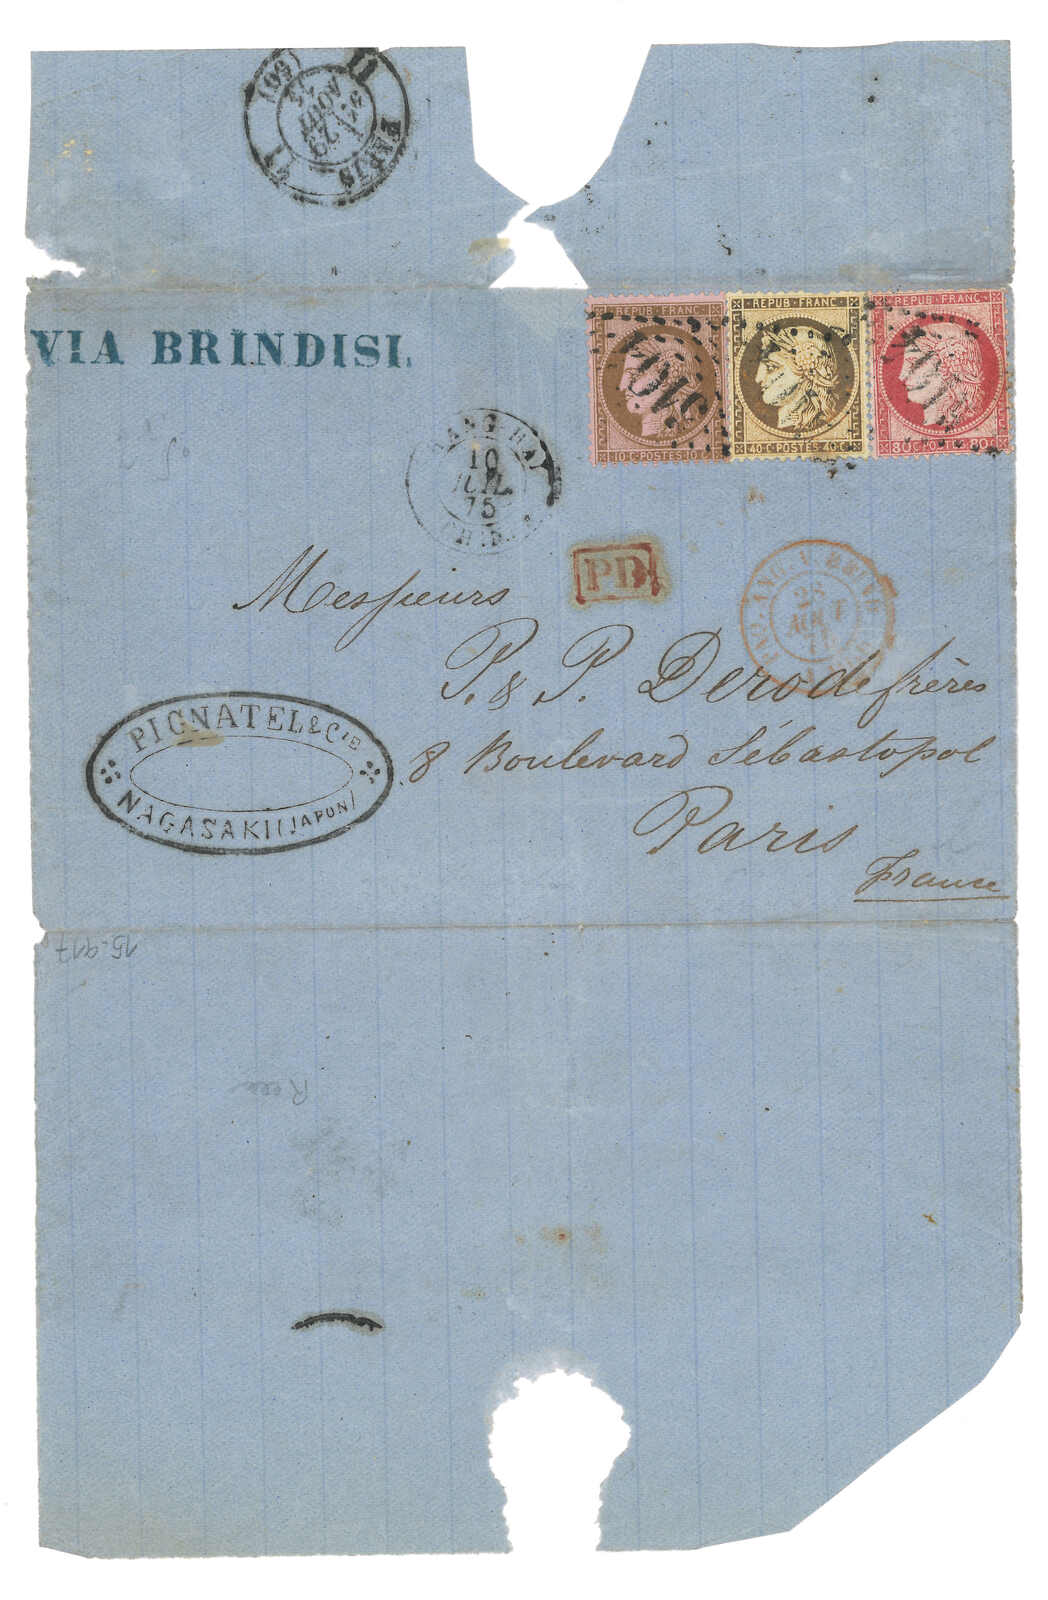 PARIS
(60)
29
AOUT
75
VIA BRINDISI.
REPUB·FRANC
10·C·POSTES·10·C
REPUB·FRANC
40·C·POSTES·40·C
REPUB·FRANC
80·C·POSTES·80·C
5104
5104
10
JUIL.
75
PD
28
AOUT
Messieurs
P. & P. Derode frères
8 Boulevard Sébastopol
Paris
France
PIGNATEL & Cie
NAGASAKI (JAPON)
15-917